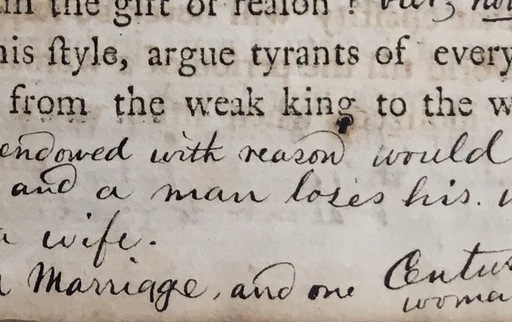 in the gift of reason ?
his ſtyle, argue tyrants of every
from the weak king to the w
endowed with reason would
and a man loses his.
a wife.
Marriage, and one Centu
woma